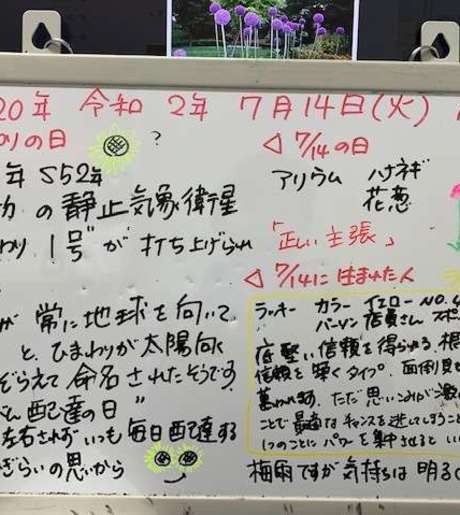 20年 令和 2年 7月14日(火)
りの日
?
年 S52年
カ の静止気象衛星
わり 1号"が打ち上げられ
が 常に地球を向いて
と、ひまわりが太陽向
ぞらえて命名されたそうです
配達の日"
左右されずいつも毎日配達する
ぎらいの思いから
◁ 7/14の日
アリウム ハナネギ
花葱
「正しい主張」
◁ 7/14に生まれた人
ラッキー カラー イエロー NO.4
パーソン 店員さん スポ
底堅い信頼を得られる 根
信頼を築くタイプ。面倒見
慕われます。ただ思いこみが激
ことで最適なチャンスを逃してしまうこと
1つのことにパワーを集中させると い
梅雨ですが気持ちは明る